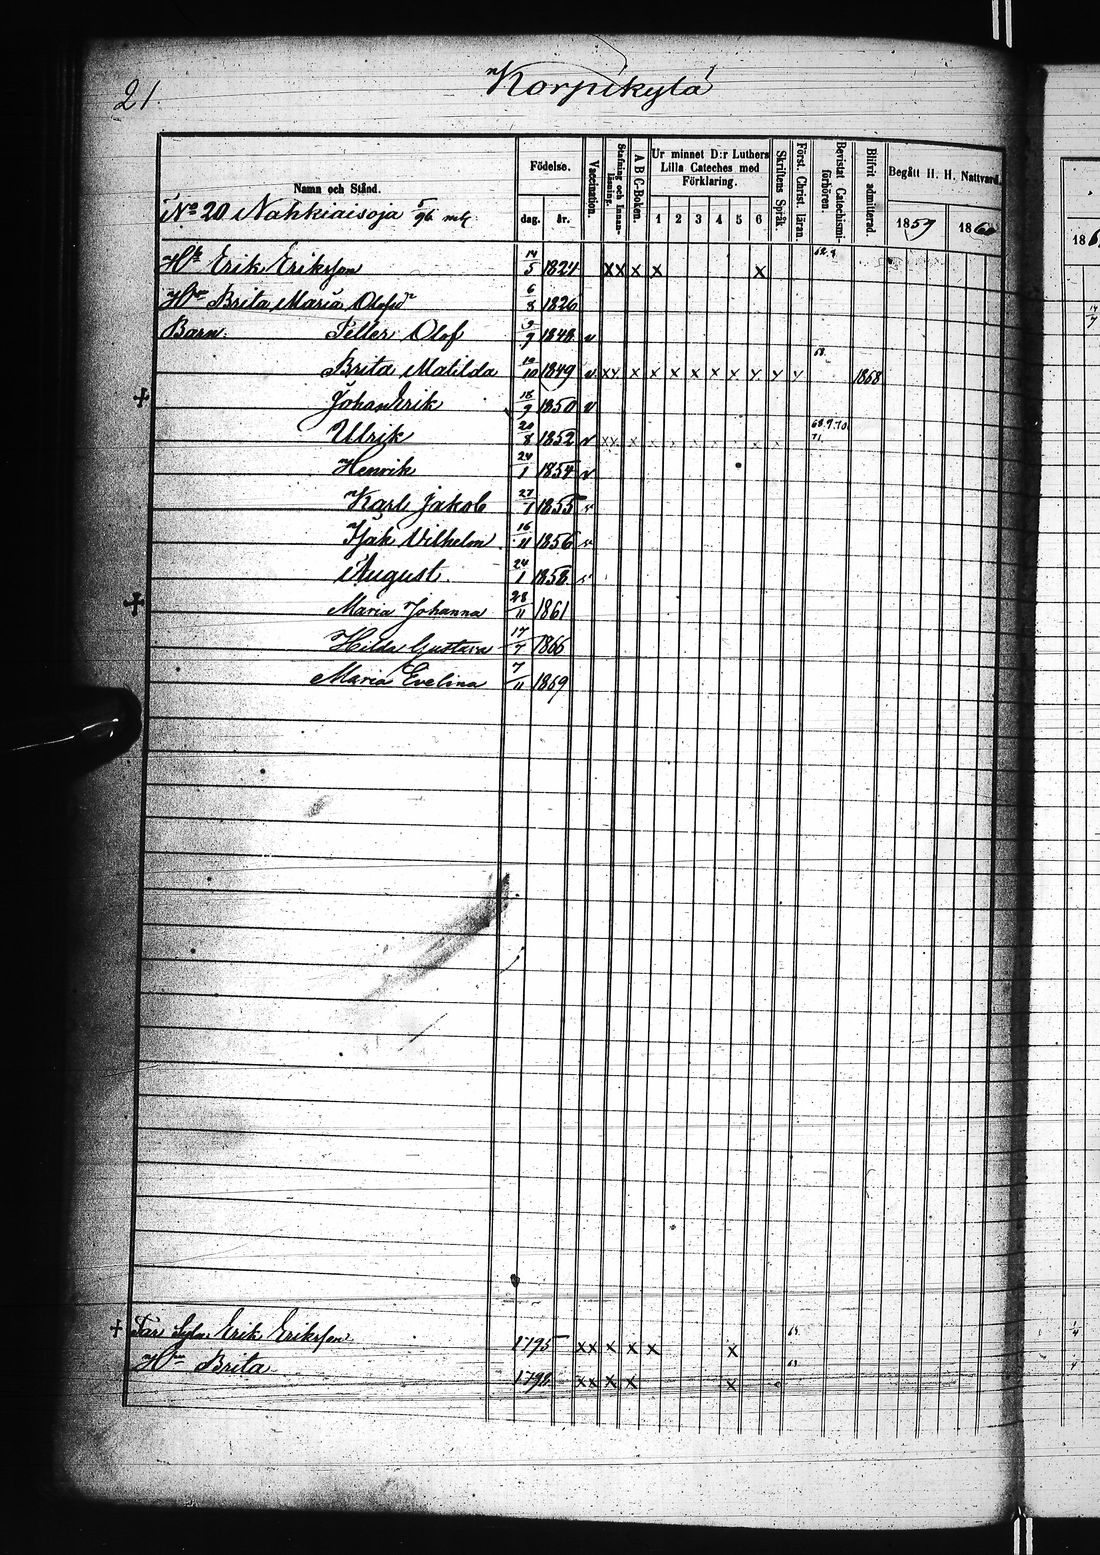 21.
Korpikylä
Namn och Stånd.
Födelse.
dag. år.
Vaccination.
Stafning och Innanläsning.
A B C-Boken.
Ur minnet D:r Luthers Lilla Cateches med Förklaring.
1 2 3 4 5 6
Skriftens Språk.
Först. Christ. läran.
Bevistat Catechismiförhören.
Blifvit admitterad.
Begått H. H. Nattvard.
1859 1860
186
No 20 Nahkiaisoja 5/96 mtl
Erik Eriksson 14/5 1824 xx x x x
Brita Maria Olofsdr 6/8 1826
Barn. Petter Olof 9 1848 v
Brita Matilda 10 1849 v xx x x x x x x x x x 1868
+ Johan Erik 18/9 1850 v
Ulrik 20/8 1852 v xx x x
Henrik 24/1 1854 v
Karl Jakob 27 1855 v
Isak Vilhelm 16/11 1856 v
August 24/1 1858 v
+ Maria Johanna 28/11 1861
Hilda Gustava 17/7 1866
Maria Evelina 7/11 1869
+ Far Erik Eriksson 1795 xx x x x x
Brita xx x x x